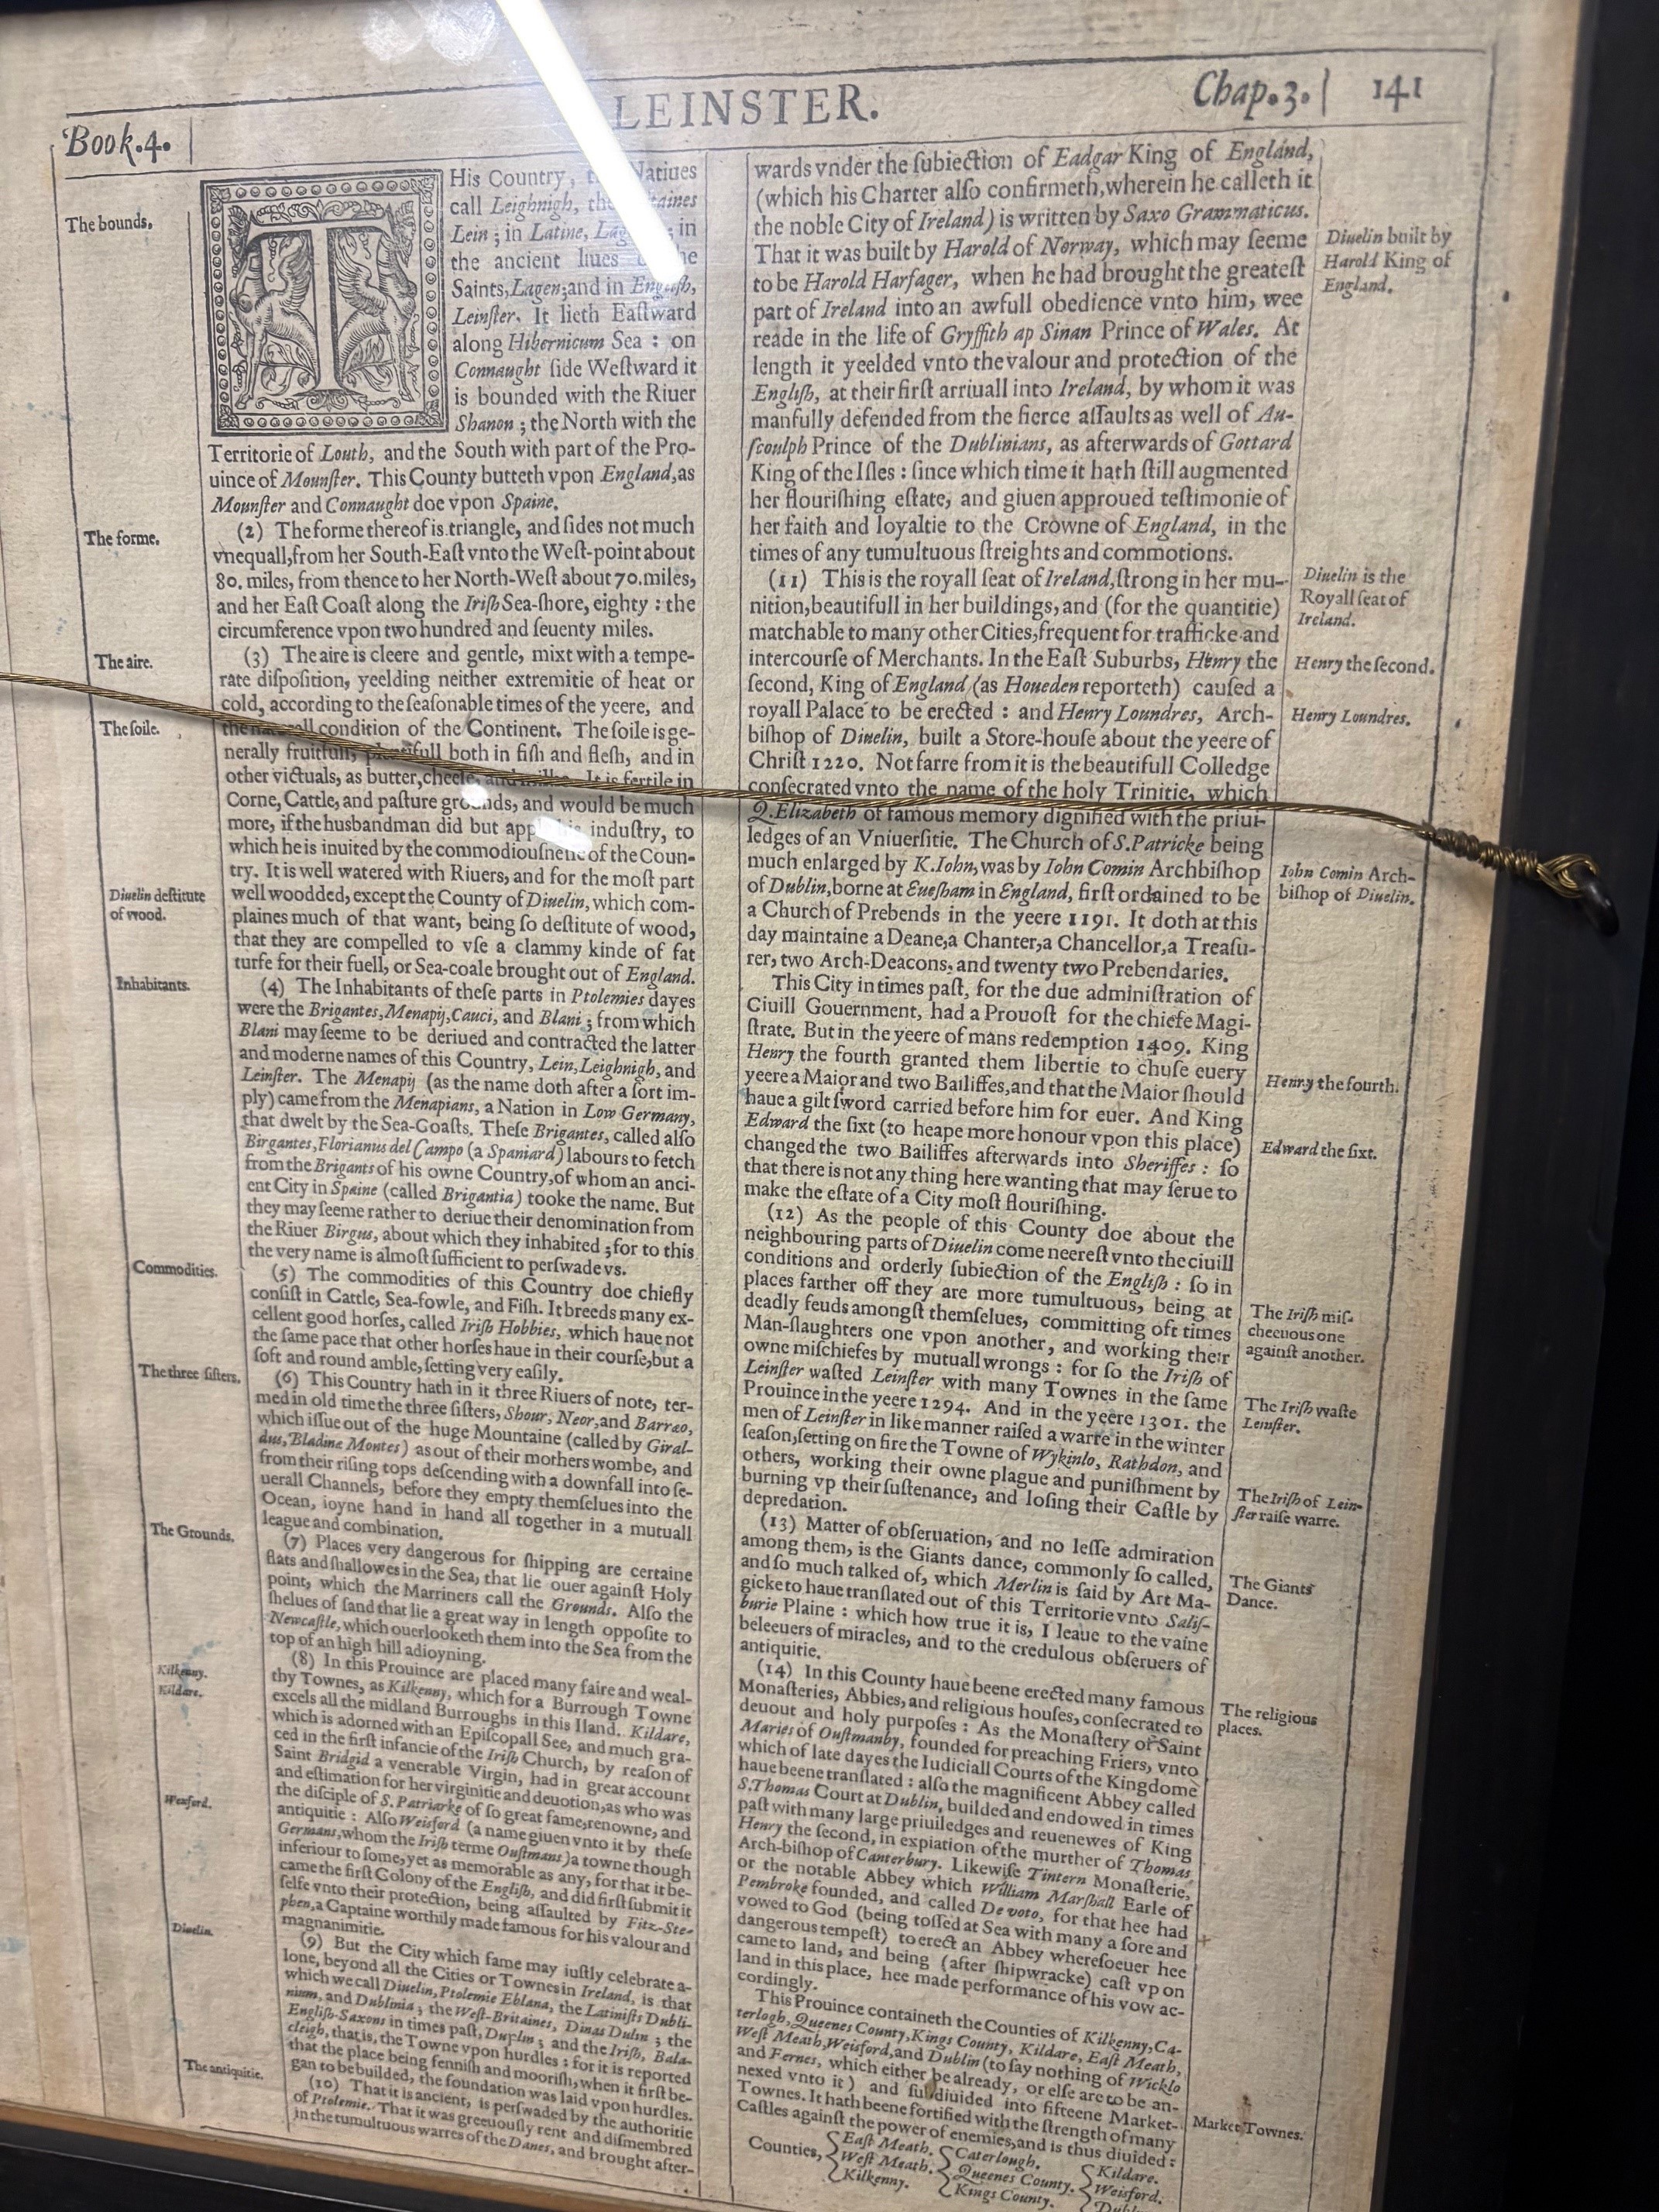 Book.4.
LEINSTER.
Chap.3.
141
The bounds.
THis Country, Natiues
call Leighnigh, the
Lein ; in Latine, in
the ancient liues
Saints, Lagen; and in English,
Leinſter. It lieth Eaſtward
along Hibernicum Sea : on
Connaught ſide Weſtward it
is bounded with the Riuer
Shanon ; the North with the
Territorie of Louth, and the South with part of the Pro-
uince of Mounſter. This County butteth vpon England, as
Mounſter and Connaught doe vpon Spaine.
The forme.
(2) The forme thereof is triangle, and ſides not much
vnequall, from her South-Eaſt vnto the Weſt-point about
80. miles, from thence to her North-Weſt about 70. miles,
and her Eaſt Coaſt along the Iriſh Sea-ſhore, eighty : the
circumference vpon two hundred and ſeuenty miles.
The aire.
(3) The aire is cleere and gentle, mixt with a tempe-
rate diſpoſition, yeelding neither extremitie of heat or
cold, according to the ſeaſonable times of the yeere, and
The ſoile.
the condition of the Continent. The ſoile is ge-
nerally fruitfull, plentifull both in fiſh and fleſh, and in
other victuals, as butter, cheeſe, and milke. It is fertile in
Corne, Cattle, and paſture grounds, and would be much
more, if the husbandman did but industry, to
which he is inuited by the commodiouſneſſe of the Coun-
try. It is well watered with Riuers, and for the moſt part
Diuelin deſtitute
of wood.
well woodded, except the County of Diuelin, which com-
plaines much of that want, being ſo deſtitute of wood,
that they are compelled to vſe a clammy kinde of fat
turfe for their fuell, or Sea-coale brought out of England.
Inhabitants.
(4) The Inhabitants of theſe parts in Ptolemies dayes
were the Brigantes, Menapij, Cauci, and Blani ; from which
Blani may ſeeme to be deriued and contracted the latter
and moderne names of this Country, Lein, Leighnigh, and
Leinſter. The Menapij (as the name doth after a ſort im-
ply) came from the Menapians, a Nation in Low Germany,
that dwelt by the Sea-Coaſts. Theſe Brigantes, called alſo
Birgantes, Florianus del Campo (a Spaniard) labours to fetch
from the Brigants of his owne Country, of whom an anci-
ent City in Spaine (called Brigantia) tooke the name. But
they may ſeeme rather to deriue their denomination from
the Riuer Birgus, about which they inhabited ; for to this
the very name is almoſt ſufficient to perſwade vs.
Commodities.
(5) The commodities of this Country doe chiefly
conſiſt in Cattle, Sea-fowle, and Fiſh. It breeds many ex-
cellent good horſes, called Iriſh Hobbies, which haue not
the ſame pace that other horſes haue in their courſe, but a
ſoft and round amble, ſetting very eaſily.
The three ſiſters.
(6) This Country hath in it three Riuers of note, ter-
med in old time the three ſiſters, Shour, Neor, and Barrao,
which iſſue out of the huge Mountaine (called by Giral-
dus, Bladinæ Montes) as out of their mothers wombe, and
from their riſing tops deſcending with a downfall into ſe-
uerall Channels, before they empty themſelues into the
Ocean, ioyne hand in hand all together in a mutuall
league and combination.
The Grounds.
(7) Places very dangerous for ſhipping are certaine
flats and ſhallowes in the Sea, that lie ouer againſt Holy
point, which the Marriners call the Grounds. Alſo the
ſhelues of ſand that lie a great way in length oppoſite to
Newcaſtle, which ouerlooketh them into the Sea from the
top of an high hill adioyning.
Kilkenny.
Kildare.
(8) In this Prouince are placed many faire and weal-
thy Townes, as Kilkenny, which for a Burrough Towne
excels all the midland Burroughs in this Iland. Kildare,
which is adorned with an Epiſcopall See, and much gra-
ced in the firſt infancie of the Iriſh Church, by reaſon of
Saint Bridgid a venerable Virgin, had in great account
and eſtimation for her virginitie and deuotion, as who was
the diſciple of S. Patriarke of ſo great fame, renowne, and
Wexford.
antiquitie : Alſo Weisford (a name giuen vnto it by theſe
Germans, whom the Iriſh terme Ouſtmans) a towne though
inferiour to ſome, yet as memorable as any, for that it be-
came the firſt Colony of the Engliſh, and did firſt ſubmit it
ſelfe vnto their protection, being aſſaulted by Fitz-Ste-
phen, a Captaine worthily made famous for his valour and
magnanimitie.
Diuelin.
(9) But the City which fame may iuſtly celebrate a-
lone, beyond all the Cities or Townes in Ireland, is that
which we call Diuelin, Ptolemie Eblana, the Latiniſts Dubli-
nium, and Dublinia ; the Weſt-Britaines, Dinas Dulin ; the
Engliſh-Saxons in times paſt, Duplin ; and the Iriſh, Bala-
cleigh, that is, the Towne vpon hurdles : for it is reported
that the place being fenniſh and mooriſh, when it firſt be-
gan to be builded, the foundation was laid vpon hurdles.
The antiquitie.
(10) That it is ancient, is perſwaded by the authoritie
of Ptolemie. That it was greeuouſly rent and diſmembred
in the tumultuous warres of the Danes, and brought after-
wards vnder the ſubiection of Eadgar King of England,
(which his Charter alſo confirmeth, wherein he calleth it
the noble City of Ireland) is written by Saxo Grammaticus.
Diuelin built by
Harold King of
England.
That it was built by Harold of Norway, which may ſeeme
to be Harold Harfager, when he had brought the greateſt
part of Ireland into an awfull obedience vnto him, wee
reade in the life of Gryffith ap Sinan Prince of Wales. At
length it yeelded vnto the valour and protection of the
Engliſh, at their firſt arriuall into Ireland, by whom it was
manfully defended from the fierce aſſaults as well of Au-
ſcoulph Prince of the Dublinians, as afterwards of Gottard
King of the Iſles : ſince which time it hath ſtill augmented
her flouriſhing eſtate, and giuen approued teſtimonie of
her faith and loyaltie to the Crowne of England, in the
times of any tumultuous ſtreights and commotions.
Diuelin is the
Royall ſeat of
Ireland.
(11) This is the royall ſeat of Ireland, ſtrong in her mu-
nition, beautifull in her buildings, and (for the quantitie)
matchable to many other Cities, frequent for trafficke and
Henry the ſecond.
intercourſe of Merchants. In the Eaſt Suburbs, Henry the
ſecond, King of England (as Houeden reporteth) cauſed a
Henry Loundres.
royall Palace to be erected : and Henry Loundres, Arch-
biſhop of Diuelin, built a Store-houſe about the yeere of
Chriſt 1220. Not farre from it is the beautifull Colledge
conſecrated vnto the name of the holy Trinitie, which
Q. Elizabeth of famous memory dignified with the priui-
ledges of an Vniuerſitie. The Church of S. Patricke being
Iohn Comin Arch-
biſhop of Diuelin.
much enlarged by K. Iohn, was by Iohn Comin Archbiſhop
of Dublin, borne at Eueſham in England, firſt ordained to be
a Church of Prebends in the yeere 1191. It doth at this
day maintaine a Deane, a Chanter, a Chancellor, a Treaſu-
rer, two Arch-Deacons, and twenty two Prebendaries.
This City in times paſt, for the due adminiſtration of
Ciuill Gouernment, had a Prouoſt for the chiefe Magi-
ſtrate. But in the yeere of mans redemption 1409. King
Henry the fourth.
Henry the fourth granted them libertie to chuſe euery
yeere a Maior and two Bailiffes, and that the Maior ſhould
haue a gilt ſword carried before him for euer. And King
Edward the ſixt.
Edward the ſixt (to heape more honour vpon this place)
changed the two Bailiffes afterwards into Sheriffes : ſo
that there is not any thing here wanting that may ſerue to
make the eſtate of a City moſt flouriſhing.
(12) As the people of this County doe about the
neighbouring parts of Diuelin come neereſt vnto the ciuill
conditions and orderly ſubiection of the Engliſh : ſo in
The Iriſh miſ-
cheeuous one
againſt another.
places farther off they are more tumultuous, being at
deadly feuds amongſt themſelues, committing oft times
Man-ſlaughters one vpon another, and working their
owne miſchiefes by mutuall wrongs : for ſo the Iriſh of
The Iriſh waſte
Leinſter.
Leinſter waſted Leinſter with many Townes in the ſame
Prouince in the yeere 1294. And in the yeere 1301. the
men of Leinſter in like manner raiſed a warre in the winter
ſeaſon, ſetting on fire the Towne of Wykinlo, Rathdon, and
The Iriſh of Lein-
ſter raiſe warre.
others, working their owne plague and puniſhment by
burning vp their ſuſtenance, and loſing their Caſtle by
depredation.
(13) Matter of obſeruation, and no leſſe admiration
The Giants
Dance.
among them, is the Giants dance, commonly ſo called,
and ſo much talked of, which Merlin is ſaid by Art Ma-
gicke to haue tranſlated out of this Territorie vnto Saliſ-
burie Plaine : which how true it is, I leaue to the vaine
beleeuers of miracles, and to the credulous obſeruers of
antiquitie.
The religious
places.
(14) In this County haue beene erected many famous
Monaſteries, Abbies, and religious houſes, conſecrated to
deuout and holy purpoſes : As the Monaſtery of Saint
Maries of Ouſtmanby, founded for preaching Friers, vnto
which of late dayes the Iudiciall Courts of the Kingdome
haue beene tranſlated : alſo the magnificent Abbey called
S. Thomas Court at Dublin, builded and endowed in times
paſt with many large priuiledges and reuenewes of King
Henry the ſecond, in expiation of the murther of Thomas
Arch-biſhop of Canterbury. Likewiſe Tintern Monaſterie,
or the notable Abbey which William Marſhall Earle of
Pembroke founded, and called De voto, for that hee had
vowed to God (being toſſed at Sea with many a ſore and
dangerous tempeſt) to erect an Abbey whereſoeuer hee
came to land, and being (after ſhipwracke) caſt vpon
land in this place, hee made performance of his vow ac-
cordingly.
This Prouince containeth the Counties of Kilkenny, Ca-
terlogh, Queenes County, Kings County, Kildare, Eaſt Meath,
Weſt Meath, Weisford, and Dublin (to ſay nothing of Wicklo
and Fernes, which either be already, or elſe are to be an-
nexed vnto it) and ſubdiuided into fifteene Market-
Market Townes.
Townes. It hath beene fortified with the ſtrength of many
Caſtles againſt the power of enemies, and is thus diuided :
Counties, Eaſt Meath. Caterlough. Kildare.
Weſt Meath. Queenes County. Weisford.
Kilkenny. Kings County.